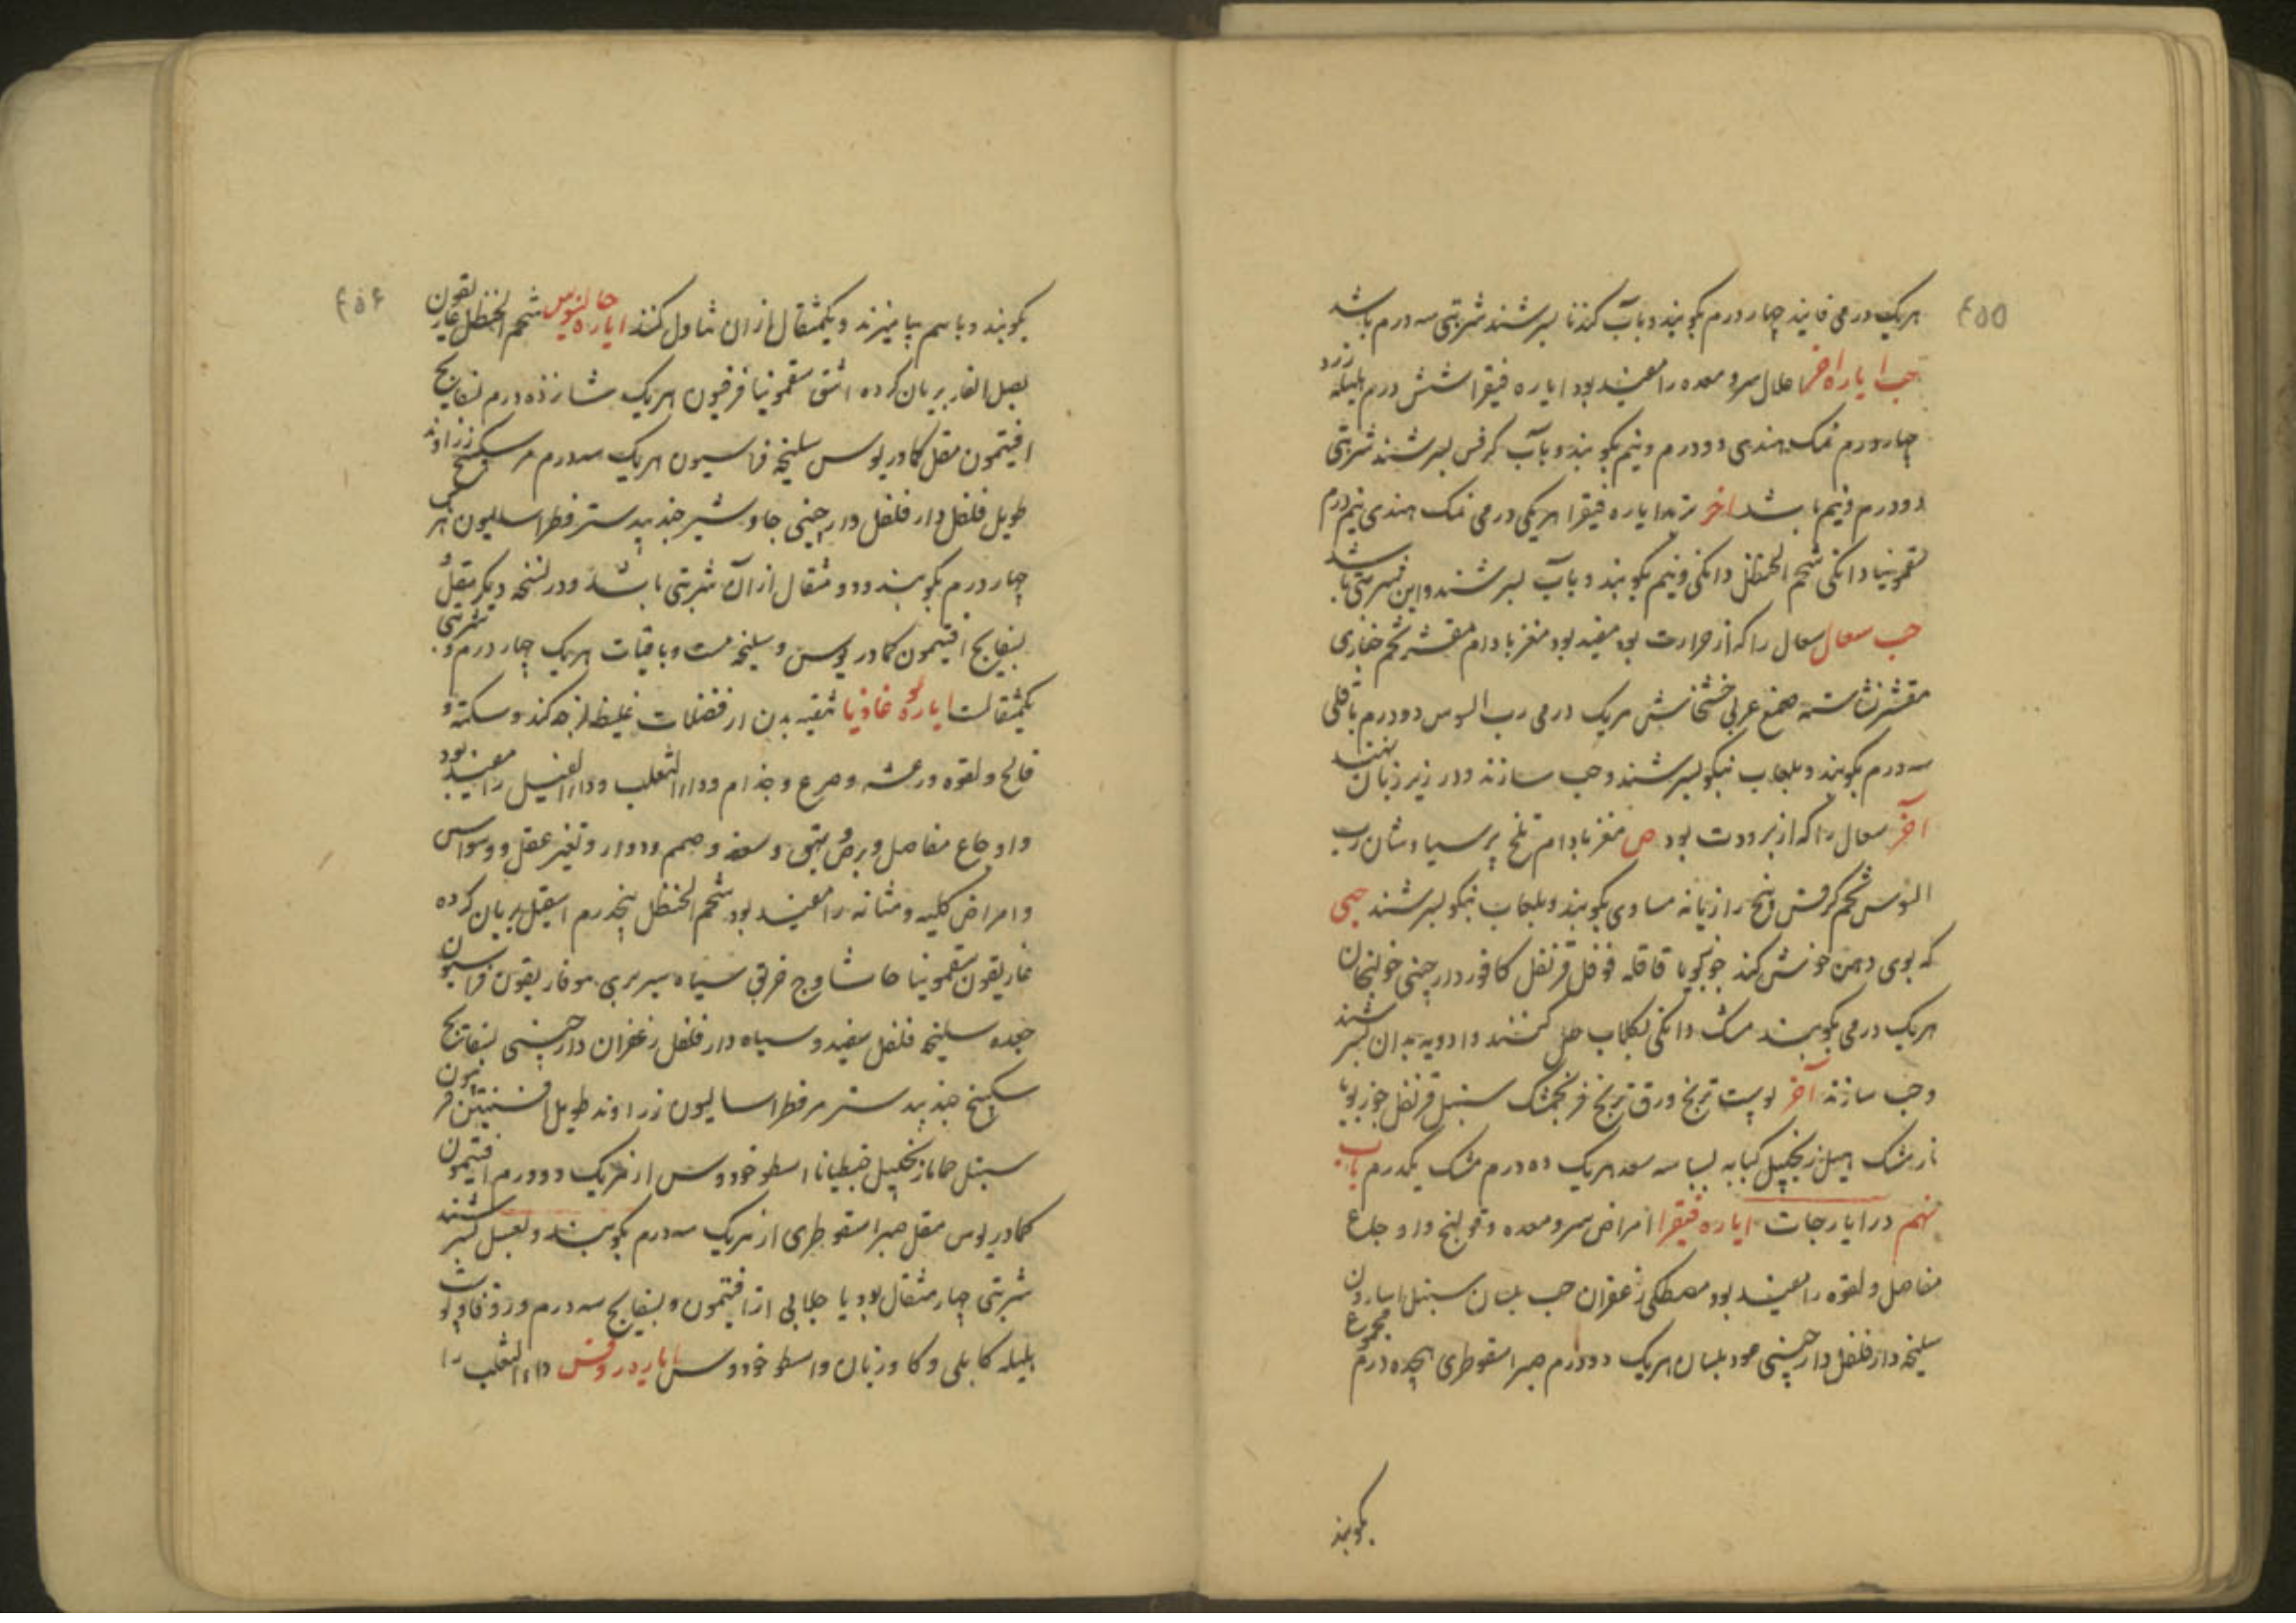 ۴۵۵
هریک درمی فانید چهار درم بکوبند و بآب کندنا بسرشند شربتی سه درم باشد
حب ایاره اخر اعلال سر و معده را مفید بود ایاره فیقرا شش درم هلیله زرد
چهار درم نمک هندی دو درم و نیم بکوبند و بآب کرفس بسرشند شربتی
دو درم و نیم باشد اخر تربد ایاره فیقرا هریکی درمی نمک هندی نیم درم
سقمونیا دانکی شحم الحنظل دانکی و نیم بکوبند و بآب بسرشند و این شربتی باشد
حب سعال سعال را که از حرارت بود مفید بود مغز بادام مقشر تخم خیاری
مقشر نشاسته صمغ عربی خشخاش هریک درمی رب السوس دو درم باقلی
سه درم بکوبند و بلعاب نیکو بسرشند و حب سازند و در زیر زبان نهند
آخر سعال را که از برودت بود ص مغز بادام تلخ پرسیاوشان رب
السوس تخم کرفس و بیخ رازیانه مساوی بکوبند و بلعاب نیکو بسرشند حبی
که بوی دهن خوش کند جوزبویا قاقله فوفل قرنفل کافور دارچینی خولنجان
هریک درمی بکوبند مشک دانکی بکلاب حل کنند و ادویه بدان بسرشند
و حب سازند آخر پوست ترنج ورق ترنج فرنجمشک سنبل قرنفل جوزبویا
نارمشک هیل زنجبیل کبابه بسباسه سعد هریک ده درم مشک یکدرم باب
نهم در ایارجات ایاره فیقرا امراض سر و معده و قولنج و اوجاع
مفاصل و لقوه را مفید بود مصطکی زعفران حب بلسان سنبل اسارون
سلیخه دارفلفل دارچینی عود بلسان هریک دو درم صبر اسقوطری هجده درم مجموع
بکوبند
۴۵۶
بکوبند و باسم بیامیزند و یکمثقال از ان تناول کنند ایاره جالینوس شحم الحنظل غاریقون
بصل الفار بریان کرده اشق سقمونیا فرفیون هریک شانزده درم بسفایج
افیتمون مقل کمادریوس سلیخه فراسیون هریک سه درم مر سکبینج زراوند
طویل فلفل دارفلفل دارچینی جاوشیر جندبیدستر فطراسالیون از هر یک
چهار درم بکوبند و دو مثقال از آن شربتی باشد و در نسخه دیکر مقل و
بسفایج افیتمون کمادریوس و سلیخه هست و باقیات هریک چهار درم و شربتی
یکمثقالست ایاره لوغاذیا تنقیه بدن از فضلات غلیظ لزجه کند و سکته و
فالج و لقوه و رعشه و صرع و جذام و داء الثعلب و داء الفیل را مفید بود
و اوجاع مفاصل و برص و بهق و سعفه و صمم و دوار و تغیر عقل و وسواس
و امراض کلیه و مثانه را مفید بود شحم الحنظل پنجدرم اسقیل بریان کرده
غاریقون سقمونیا حاشا وج خربق سیاه سیر بربری هوفاریقون فراسیون
جعده سلیخه فلفل سفید و سیاه دارفلفل زعفران دارچینی بسفایج
سکبینج جندبیدستر مر فطراسالیون زراوند طویل افسنتین فرفیون
سنبل حماما زنجبیل جنطیانا اسطوخودوس از هریک دو درم افیتمون
کمادریوس مقل صبر اسقوطری از هریک سه درم بکوبند و بعسل بسرشند
شربتی چهار مثقال بود یا جلابی از افیتمون و بسفایج سه درم
هلیله کابلی و کاوزبان و اسطوخودوس ایاره روفس داء الثعلب را